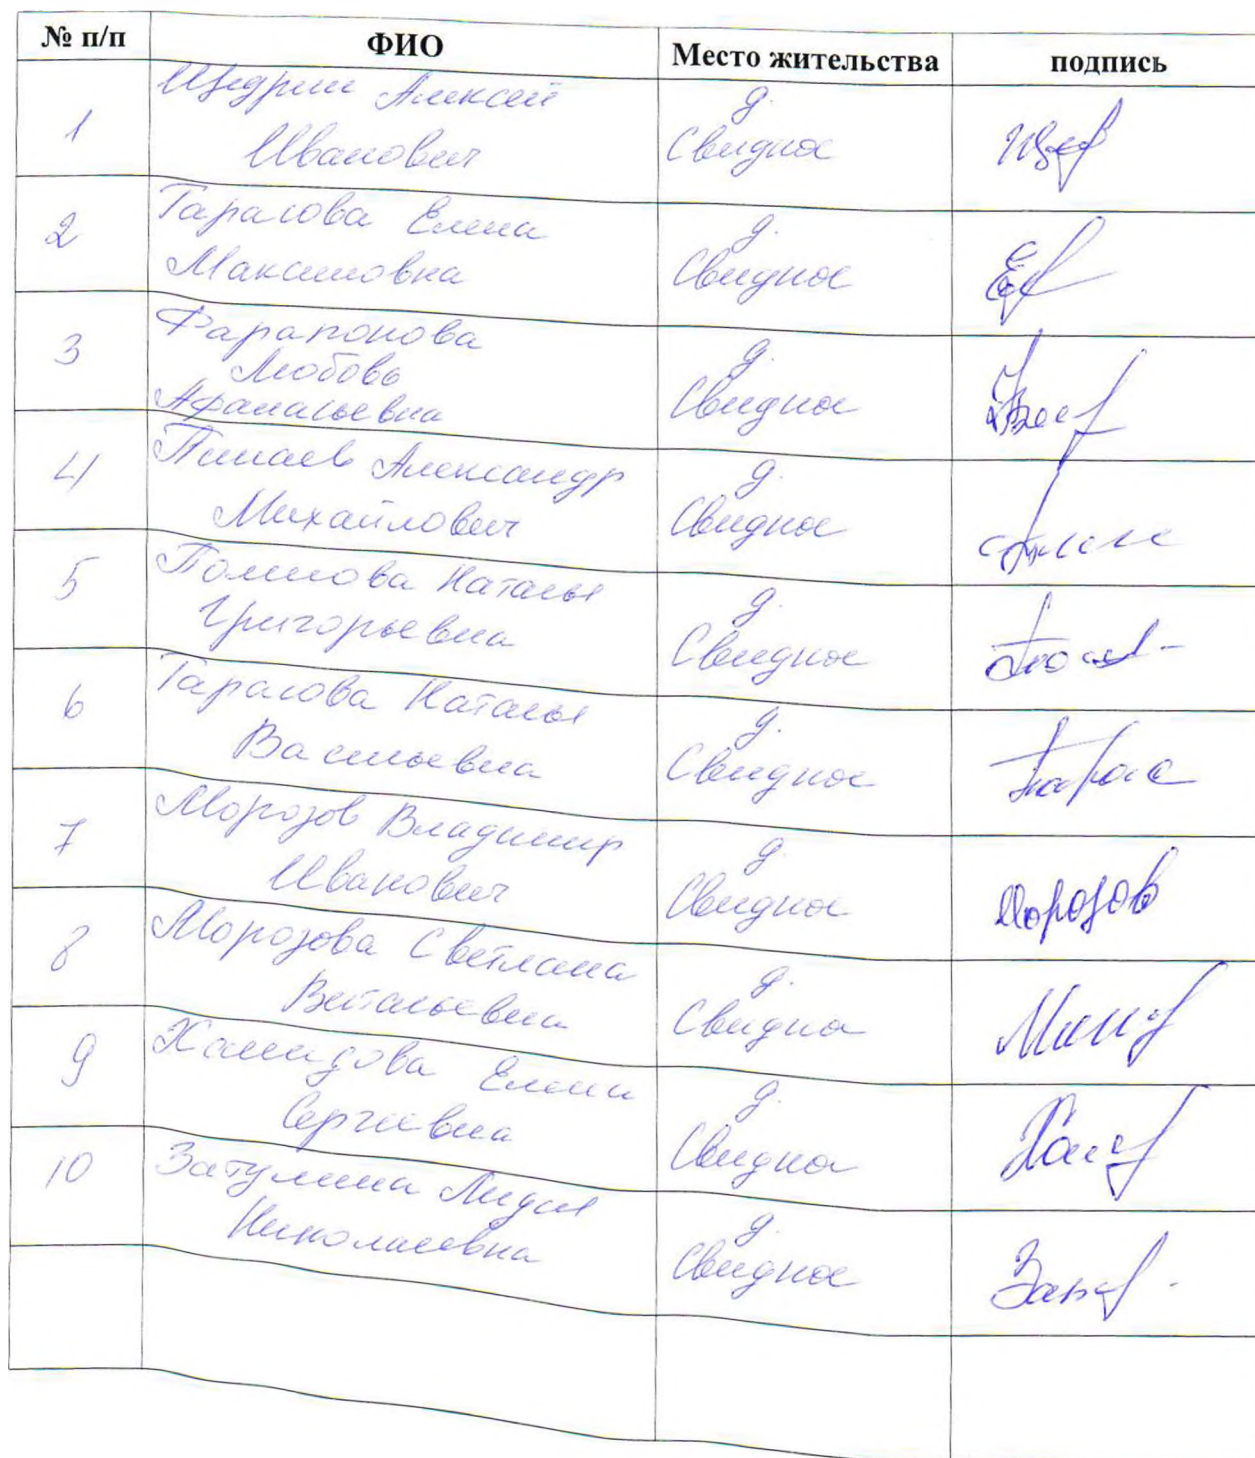 № п/п ФИО Место жительства подпись
1 Щедрин Алексей
Иванович
д.
Свидное
2 Тарасова Елена
Максимовна
д.
Свидное
3 Фарапонова
Любовь
Афанасьевна
д.
Свидное
4 Пинаев Александр
Михайлович
д.
Свидное
5 Полинова Наталья
Григорьевна
д.
Свидное
6 Тарасова Наталья
Васильевна
д.
Свидное
7 Морозов Владимир
Иванович
д.
Свидное
Морозов
8 Морозова Светлана
Витальевна
д.
Свидное
9 Хамидова Елена
Сергеевна
д.
Свидное
10 Затулина Лидия
Николаевна
д.
Свидное